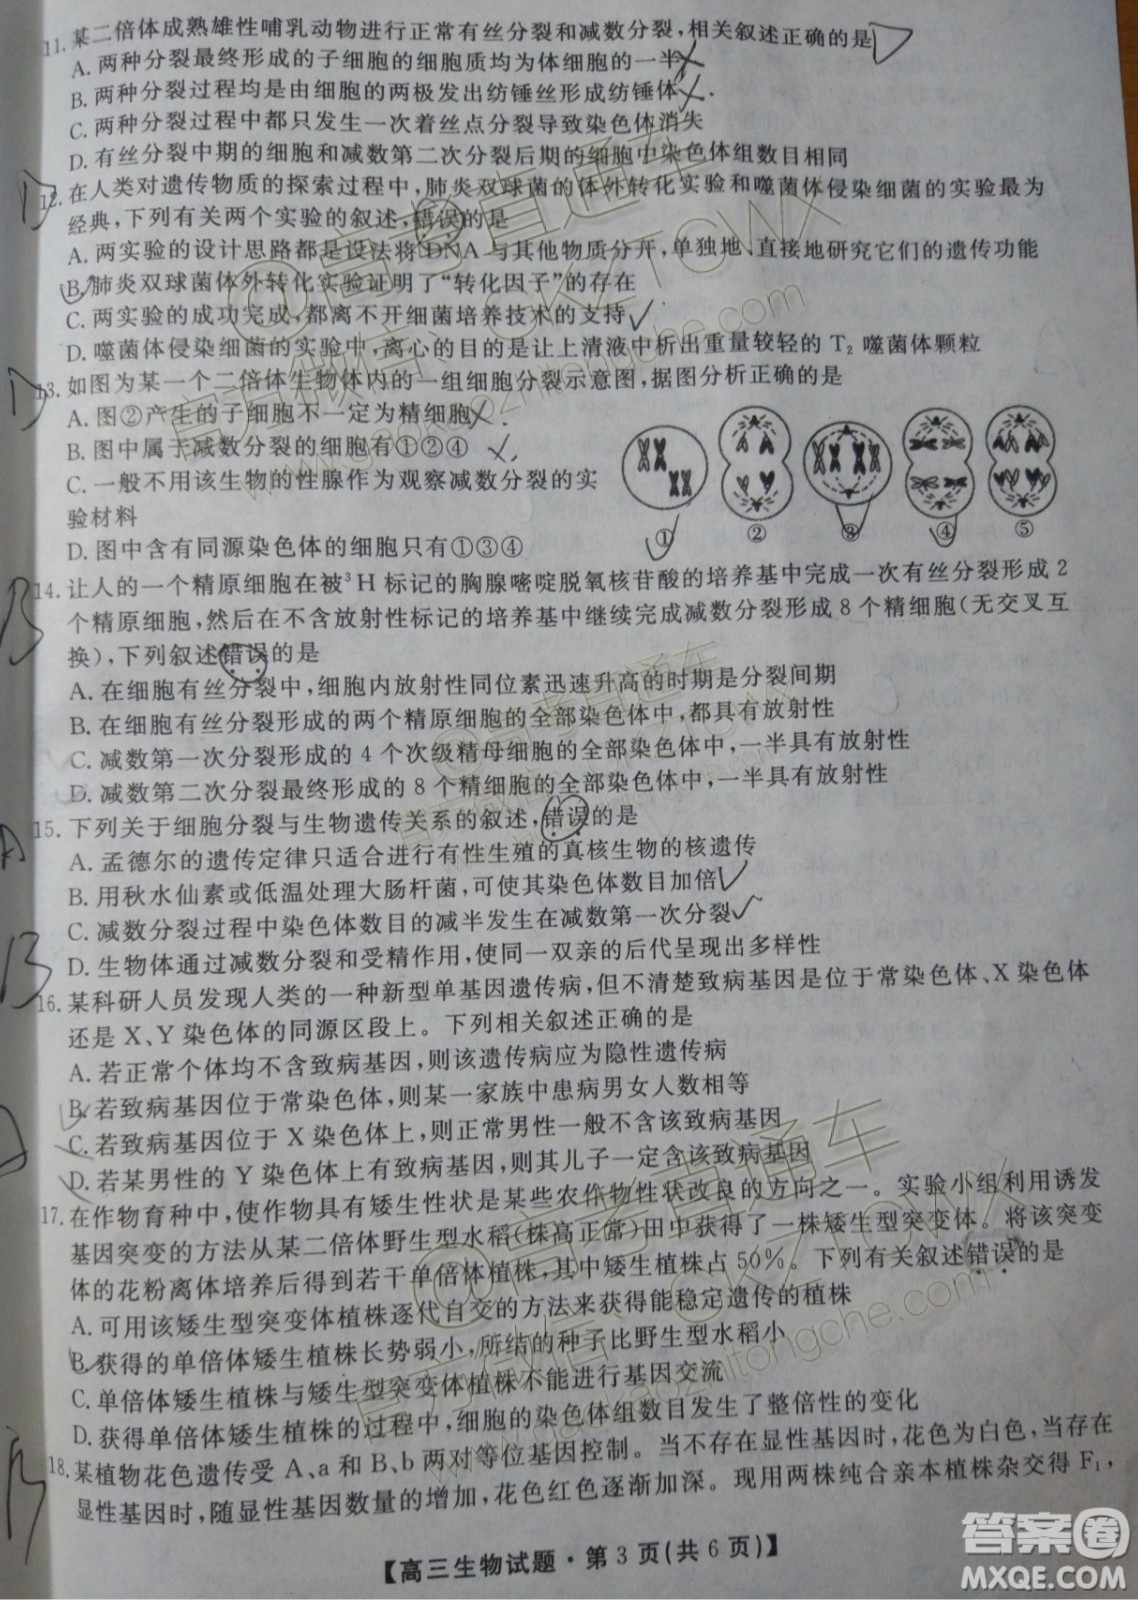 11. 某二倍体成熟雄性哺乳动物进行正常有丝分裂和减数分裂,相关叙述正确的是
A. 两种分裂最终形成的子细胞的细胞质均为体细胞的一半
B. 两种分裂过程均是由细胞的两极发出纺锤丝形成纺锤体
C. 两种分裂过程中都只发生一次着丝点分裂导致染色体消失
D. 有丝分裂中期的细胞和减数第二次分裂后期的细胞中染色体组数目相同
12. 在人类对遗传物质的探索过程中,肺炎双球菌的体外转化实验和噬菌体侵染细菌的实验最为
经典,下列有关两个实验的叙述,错误的是
A. 两实验的设计思路都是设法将 DNA 与其他物质分开,单独地、直接地研究它们的遗传功能
B. 肺炎双球菌体外转化实验证明了“转化因子”的存在
C. 两实验的成功完成,都离不开细菌培养技术的支持
D. 噬菌体侵染细菌的实验中,离心的目的是让上清液中析出重量较轻的 T₂ 噬菌体颗粒
13. 如图为某一个二倍体生物体内的一组细胞分裂示意图,据图分析正确的是
A. 图②产生的子细胞不一定为精细胞
B. 图中属于减数分裂的细胞有①②④
C. 一般不用该生物的性腺作为观察减数分裂的实
验材料
D. 图中含有同源染色体的细胞只有①③④
① ② ③ ④ ⑤
14. 让人的一个精原细胞在被³H 标记的胸腺嘧啶脱氧核苷酸的培养基中完成一次有丝分裂形成 2
个精原细胞,然后在不含放射性标记的培养基中继续完成减数分裂形成 8 个精细胞(无交叉互
换),下列叙述错误的是
A. 在细胞有丝分裂中,细胞内放射性同位素迅速升高的时期是分裂间期
B. 在细胞有丝分裂形成的两个精原细胞的全部染色体中,都具有放射性
C. 减数第一次分裂形成的 4 个次级精母细胞的全部染色体中,一半具有放射性
D. 减数第二次分裂最终形成的 8 个精细胞的全部染色体中,一半具有放射性
15. 下列关于细胞分裂与生物遗传关系的叙述,错误的是
A. 孟德尔的遗传定律只适合进行有性生殖的真核生物的核遗传
B. 用秋水仙素或低温处理大肠杆菌,可使其染色体数目加倍
C. 减数分裂过程中染色体数目的减半发生在减数第一次分裂
D. 生物体通过减数分裂和受精作用,使同一双亲的后代呈现出多样性
16. 某科研人员发现人类的一种新型单基因遗传病,但不清楚致病基因是位于常染色体、X 染色体
还是 X、Y 染色体的同源区段上。下列相关叙述正确的是
A. 若正常个体均不含致病基因,则该遗传病应为隐性遗传病
B. 若致病基因位于常染色体,则某一家族中患病男女人数相等
C. 若致病基因位于 X 染色体上,则正常男性一般不含该致病基因
D. 若某男性的 Y 染色体上有致病基因,则其儿子一定含该致病基因
17. 在作物育种中,使作物具有矮生性状是某些农作物性状改良的方向之一。实验小组利用诱发
基因突变的方法从某二倍体野生型水稻(株高正常)田中获得了一株矮生型突变体。将该突变
体的花粉离体培养后得到若干单倍体植株,其中矮生植株占 50%。下列有关叙述错误的是
A. 可用该矮生型突变体植株逐代自交的方法来获得能稳定遗传的植株
B. 获得的单倍体矮生植株长势弱小,所结的种子比野生型水稻小
C. 单倍体矮生植株与矮生型突变体植株不能进行基因交流
D. 获得单倍体矮生植株的过程中,细胞的染色体组数目发生了整倍性的变化
18. 某植物花色遗传受 A、a 和 B、b 两对等位基因控制。当不存在显性基因时,花色为白色,当存在
显性基因时,随显性基因数量的增加,花色红色逐渐加深。现用两株纯合亲本植株杂交得 F₁,
【高三生物试题·第 3 页(共 6 页)】
答案圈
MXQE.COM